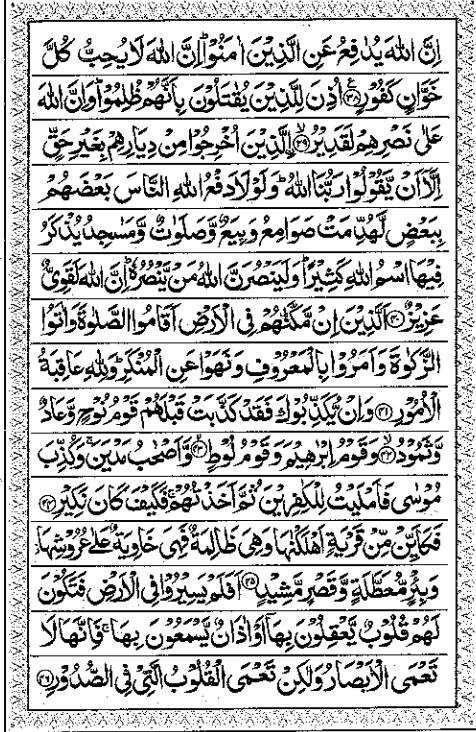 اِنَّ اللّٰهَ يُدٰفِعُ عَنِ الَّذِيْنَ اٰمَنُوْا ؕ اِنَّ اللّٰهَ لَا يُحِبُّ كُلَّ
خَوَّانٍ كَفُوْرٍ ﴿۳۸﴾ اُذِنَ لِلَّذِيْنَ يُقٰتَلُوْنَ بِاَنَّهُمْ ظُلِمُوْا ؕ وَاِنَّ اللّٰهَ
عَلٰى نَصْرِهِمْ لَقَدِيْرُ ﴿۳۹﴾ اۨلَّذِيْنَ اُخْرِجُوْا مِنْ دِيَارِهِمْ بِغَيْرِ حَقٍّ
اِلَّاۤ اَنْ يَّقُوْلُوْا رَبُّنَا اللّٰهُ ؕ وَلَوْلَا دَفْعُ اللّٰهِ النَّاسَ بَعْضَهُمْ
بِبَعْضٍ لَّهُدِّمَتْ صَوَامِعُ وَبِيَعٌ وَّصَلَوٰتٌ وَّمَسٰجِدُ يُذْكَرُ
فِيْهَا اسْمُ اللّٰهِ كَثِيْرًا ؕ وَلَيَنْصُرَنَّ اللّٰهُ مَنْ يَّنْصُرُهٗ ؕ اِنَّ اللّٰهَ لَقَوِىٌّ
عَزِيْزٌ ﴿۴۰﴾ اَلَّذِيْنَ اِنْ مَّكَّنّٰهُمْ فِى الْاَرْضِ اَقَامُوا الصَّلٰوةَ وَاٰتَوُا
الزَّكٰوةَ وَاَمَرُوْا بِالْمَعْرُوْفِ وَنَهَوْا عَنِ الْمُنْكَرِ ؕ وَلِلّٰهِ عَاقِبَةُ
الْاُمُوْرِ ﴿۴۱﴾ وَاِنْ يُّكَذِّبُوْكَ فَقَدْ كَذَّبَتْ قَبْلَهُمْ قَوْمُ نُوْحٍ وَّعَادٌ
وَّثَمُوْدُ ﴿۴۲﴾ وَقَوْمُ اِبْرٰهِيْمَ وَقَوْمُ لُوْطٍ ﴿۴۳﴾ وَّاَصْحٰبُ مَدْيَنَ ۚ وَكُذِّبَ
مُوْسٰى فَاَمْلَيْتُ لِلْكٰفِرِيْنَ ثُمَّ اَخَذْتُهُمْ ۚ فَكَيْفَ كَانَ نَكِيْرِ ﴿۴۴﴾
فَكَاَيِّنْ مِّنْ قَرْيَةٍ اَهْلَكْنٰهَا وَهِىَ ظَالِمَةٌ فَهِىَ خَاوِيَةٌ عَلٰى عُرُوْشِهَا
وَبِئْرٍ مُّعَطَّلَةٍ وَّقَصْرٍ مَّشِيْدٍ ﴿۴۵﴾ اَفَلَمْ يَسِيْرُوْا فِى الْاَرْضِ فَتَكُوْنَ
لَهُمْ قُلُوْبٌ يَّعْقِلُوْنَ بِهَاۤ اَوْ اٰذَانٌ يَّسْمَعُوْنَ بِهَا ۚ فَاِنَّهَا لَا
تَعْمَى الْاَبْصَارُ وَلٰكِنْ تَعْمَى الْقُلُوْبُ الَّتِىْ فِى الصُّدُوْرِ ﴿۴۶﴾